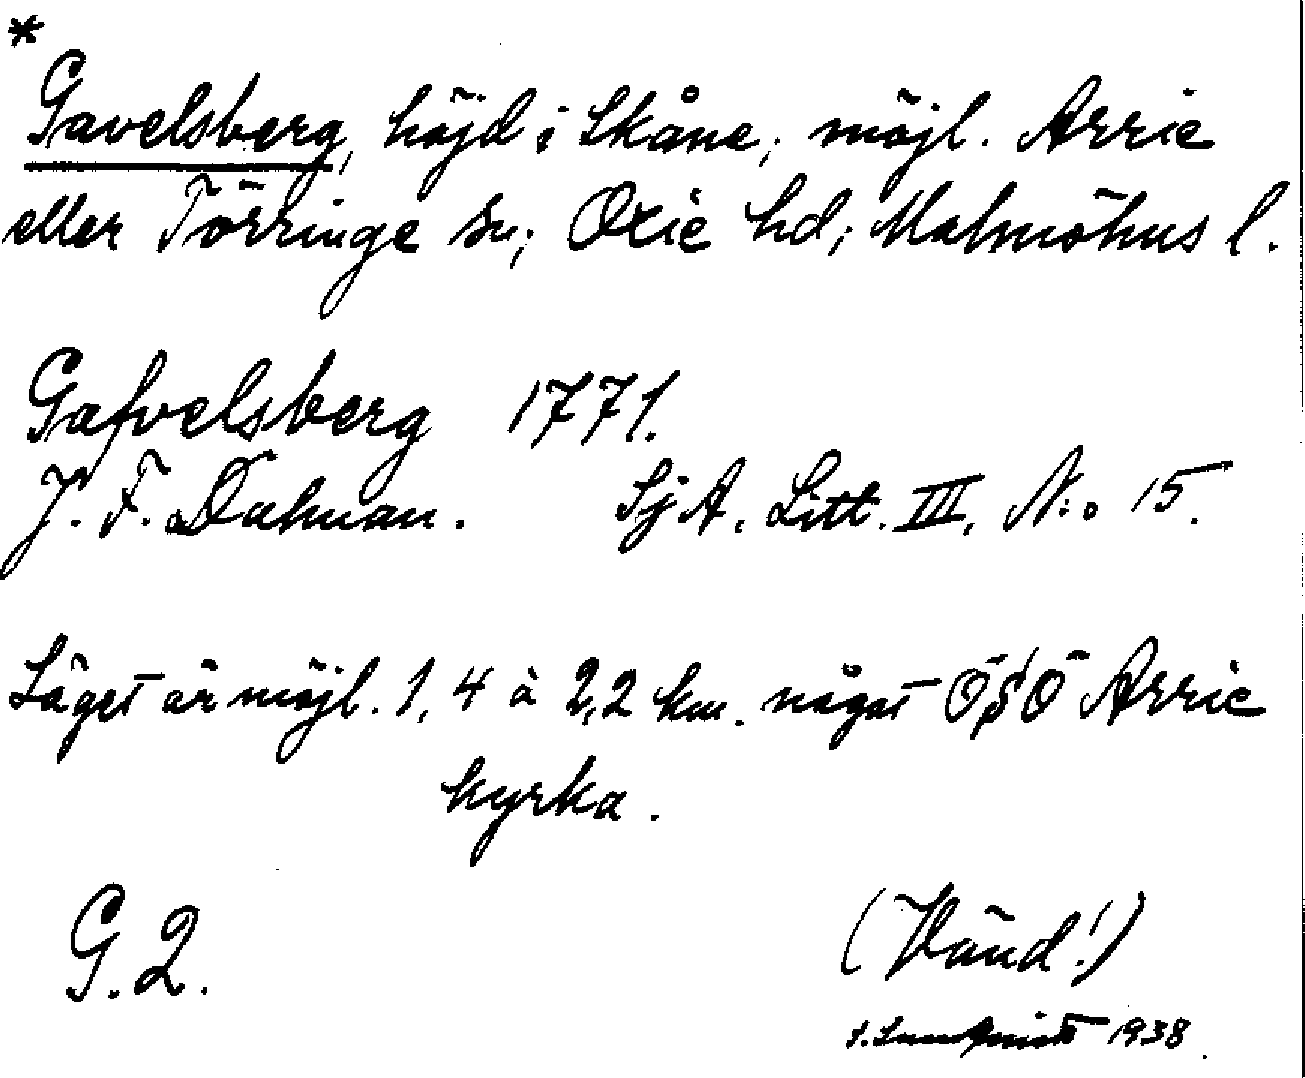 *
Gavelsberg, höjd i Skåne; möjl. Arrie
eller Törringe sn; Oxie hd; Malmöhus l.
Gafvelsberg 1771.
J. F. Dahman. Sj A. Litt. III, N:o 15.
Läget är möjl. 1,4 à 2,2 km. något ÖSÖ Arrie
kyrka.
G. 2.
(Vänd!)
1938.